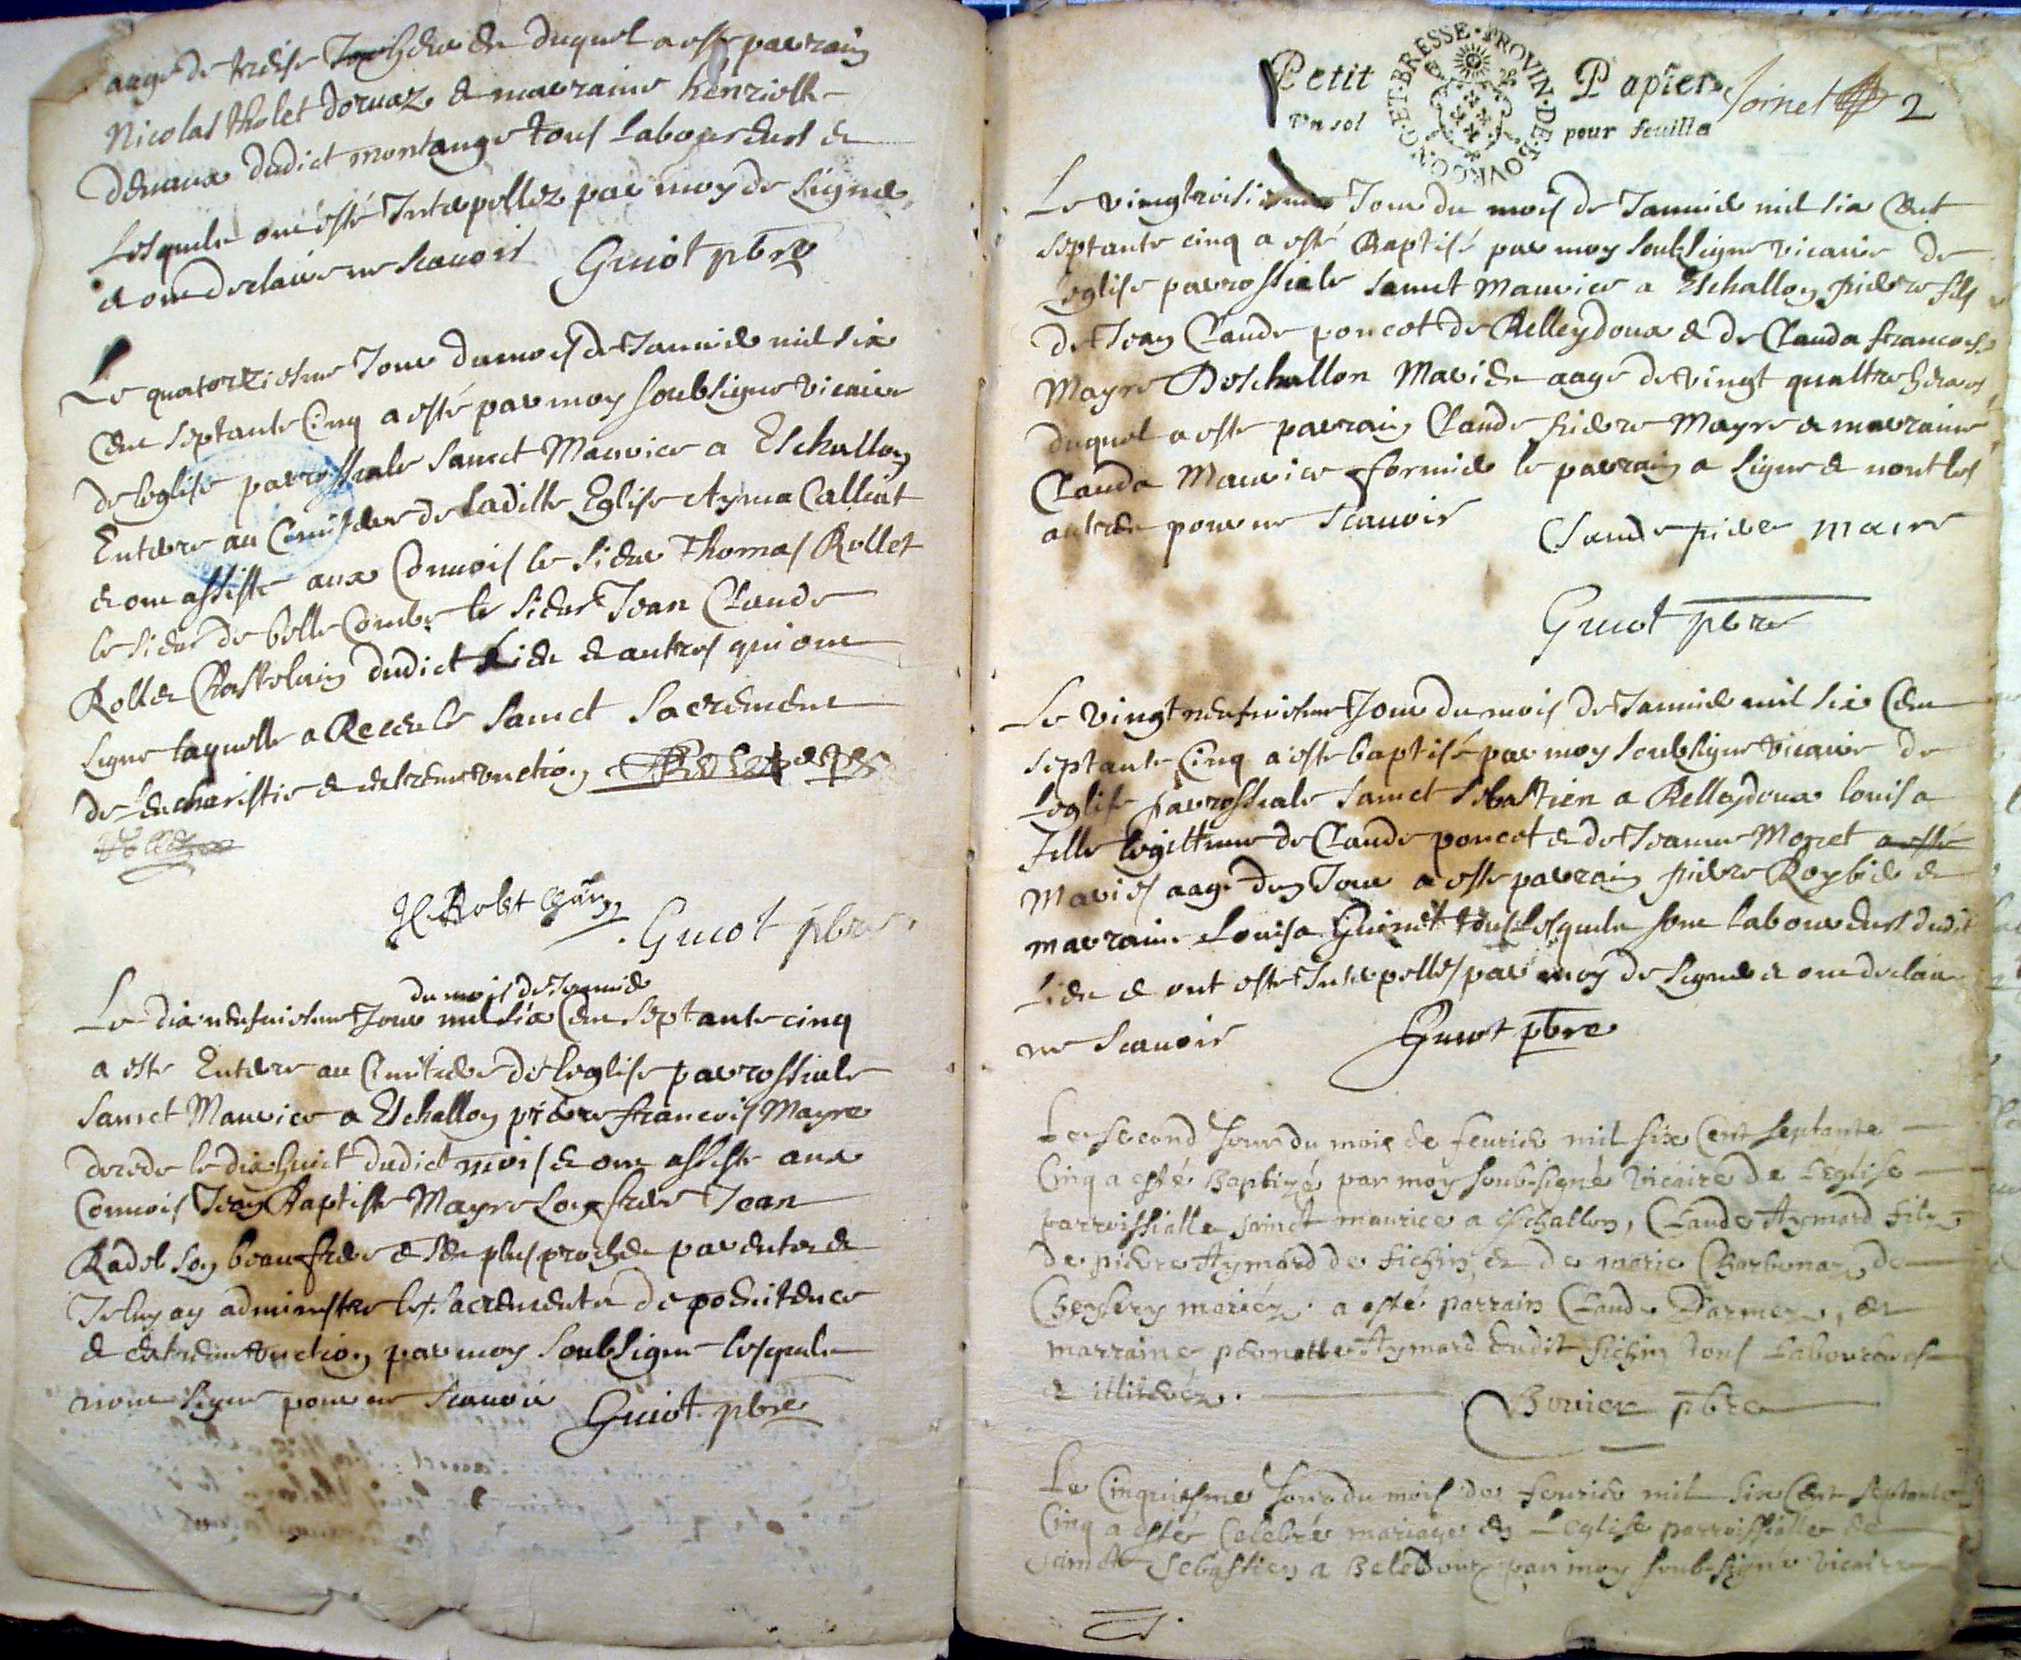 aagé de treise heures duquel a esté parrain
Nicolas tholet dornaz & marraine henriette
devaux dudict montange tous laboureurs &
lesquels ont esté Interpellez par moy de signer
& ont declaire ne scavoir Guiot pbre
Le quatorziesme Jour du mois de Janvier mil six
Cent septante Cinq a esté par moy soubsigne vicaire
de leglise parrossiale sainct Maurice a Eschallon
Enterre au Cimistiere de laditte Eglise Ayma Calliat
& ont assiste aux Convois le sieur Thomas Rollet
le sieur de belle Combe le sieur Jean Claude
Rollet Chastelain dudict lieu & autres qui ont
signe laquelle a Receu le sainct sacrement
de leucharistie & extreme unction
Guiot pbre
du mois de Janvier
Le dix neufviesme Jour mil six Cent septante cinq
a esté Enterre au Cimitiere de leglise parrossiale
sainct Maurice a Eschallon pierre francois Mayre
decede le dix huict dudict mois & ont assiste aux
Convois Jean Baptiste Mayre son frere Jean
Radet son beau frere & ses plus proches parents &
Je luy ay administre les sacrements de penitence
& extreme unction par moy soubsigne lesquels
nont signe pour ne scavoir Guiot pbre
Petit Papier Jornet 2
Un sol pour feuille
PROVIN·DE·BOVRGONG·ET·BRESSE·
Le vingtroisiesme Jour du mois de Janvier mil six Cent
septante cinq a esté Baptisé par moy soubsigne vicaire de
leglise parrossiale sainct Maurice a Eschallon pierre fils
de Jean Claude poncet de Belleydoux & de Clauda francoise
Mayre Deschallon Mariés aagé de vingt quattre heures
duquel a esté parrain Claude pierre Mayre & marraine
Clauda Maurice fornier le parrain a signe & non les
autres pour ne scavoir Claude pierre maire
Guiot pbre
Le vingt neufviesme Jour du mois de Janvier mil six Cent
septante Cinq a esté baptisé par moy soubsigne vicaire de
leglise parrossiale sainct sebastien a Belleydoux louisa
fille legittime de Claude poncet & de Jeanne Moret a esté
Mariés aagé dun Jour a esté parrain pierre Roybier &
marraine Louisa Guinet tous lesquels sont laboureurs dudit
lieu & ont esté Interpellés par moy de signer & ont declaire
ne scavoir Guiot pbre
Le second Jour du mois de feurier mil six Cent septante
Cinq a esté Baptizé par moy soub-signé vicaire de L'église
parroissialle sainct maurice a eschallon, Claude Aymard fils
de pierre Aymard de fichin, & de marie Charbonay de
Chezery mariéz. a esté parrain Claude Darmez, &
marraine pernette Aymard dudit fichin tous Laboureurs
& illiteréz. Bouier pbre
Le Cinquiesme Jour du mois de feurier mil six Cent septante
Cinq a esté Celebré mariage en L'eglise parroissialle de
sainct Sebastien a Beledoux par moy soub-signé vicaire